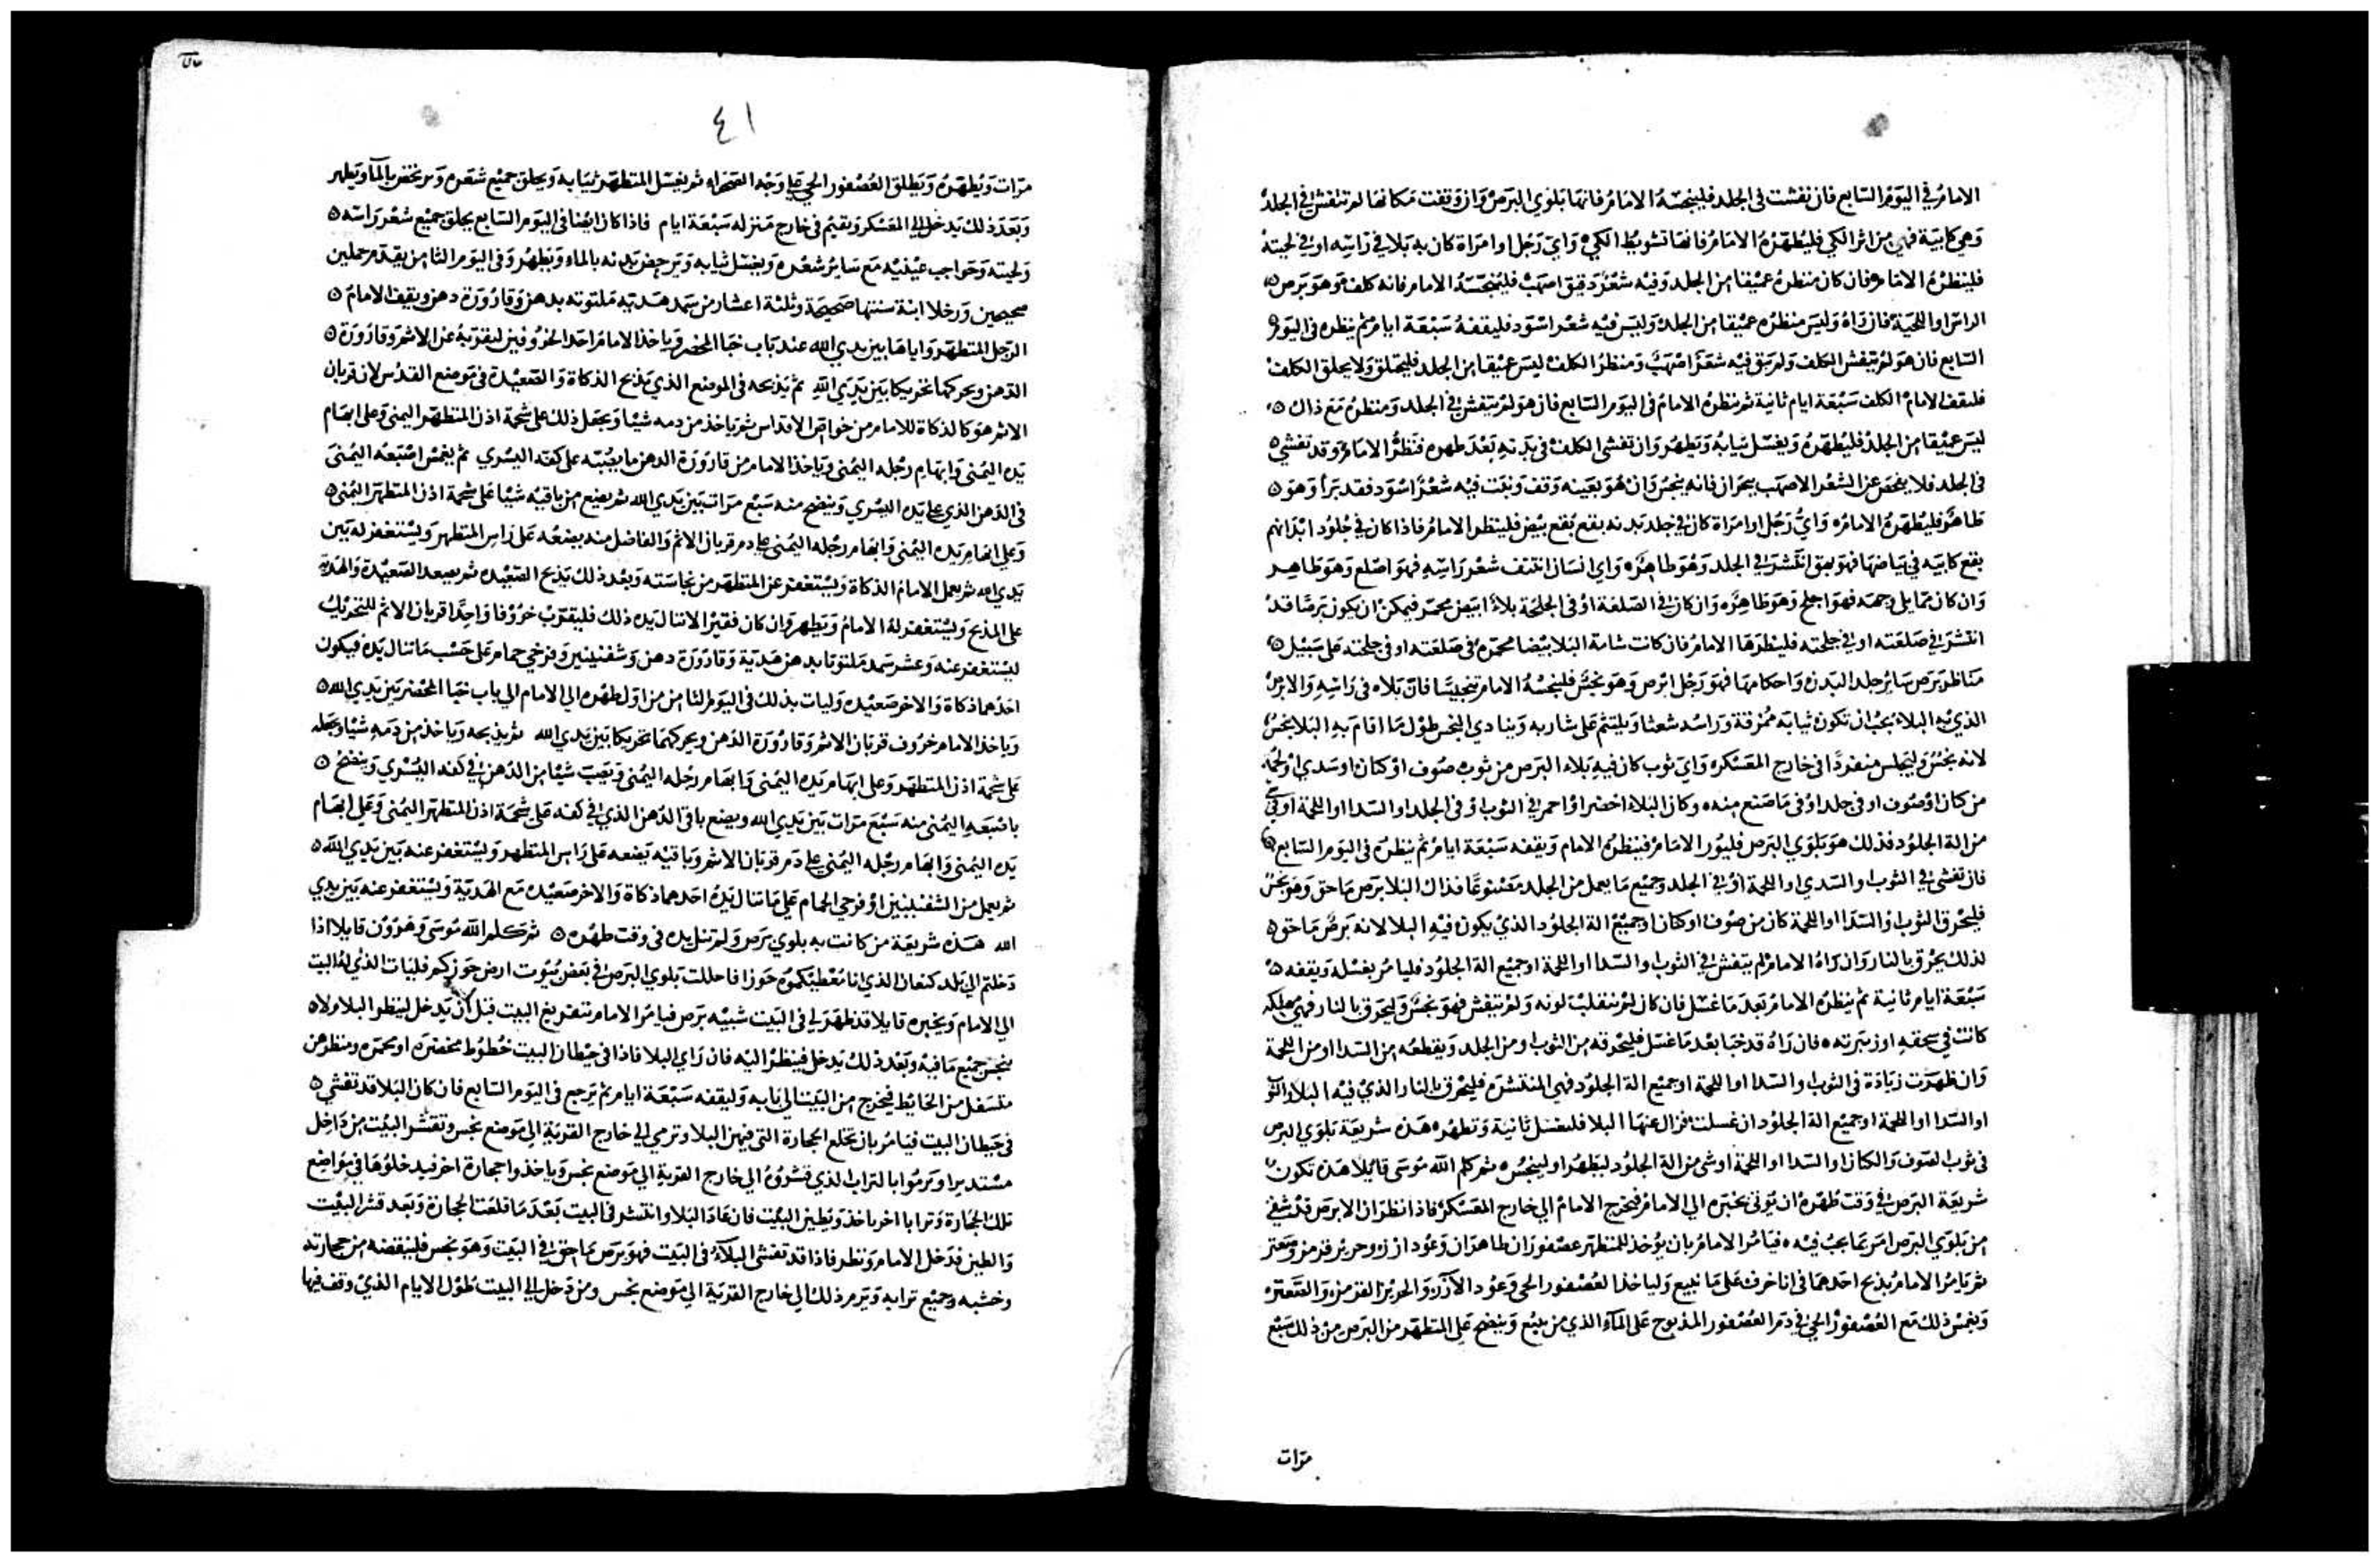 الامامُ في اليَومِ السَابع فان تفشت في الجلد فلينجسّهُ الامامُ فانها بَلوي البَرصْ وَان وَقفت مَكانهَا لم تتفشى في الجلدْ
وَهي كابيَة فهي من اثر الكي فليُطهّرْهُ الامَامُ فانهَا تشويط الكيْ ه وَايّ رَجُل اوامرَاة كان به بَلا في رَاسِه او في لحيَتهْ
فلينظرْهُ الامَام فان كان منظرهُ عميقا من الجلد وَفيْه شعْرٌ دقيق اصهَبْ فلينجّسَهُ الامام فانه كلف وَهوَ بَرص
الراس او اللحيَة فان رَاهُ وَليسَ منظرُه عميقا من الجلد وَليسَ فيْه شعْر اسْوَد فليقفهُ سَبْعَة ايام ثم ينظره في اليَومْ
السَابع فان هوَ لمْ يَتفش الكلف وَلم يَبق فيْه شعْرٌ اصْهَبٌ وَمنظرُ الكلف ليسَ عميقا من الجلد فليحلق وَلا يحلق الكلفْ
فليقف الامامُ الكلف سَبْعَة ايام ثانية ثم ينظرهُ الامامُ في اليَوم السَابع فان هوَ لمْ يَتفش في الجلد وَمنظرُهُ مَع ذاك
ليسَ عميْقا من الجلدْ فليُطهّرْهُ وَيغسل ثيَابهُ وَيَطهر وَان تفشى الكلفْ في بَدَنهِ بَعْدَ طهره فنظرُ الامَامُ وَقد تفشي
في الجلد فلا يفحصَ عن الشعْر الاصهَب بحرَ ان فانه ينجسُ وَان هُوَ بعَينه وَقف وَنبَت فيْه شعْرٌ اسْوَد فقد بَرأ وَهوَ
طاهرٌ فليُطهّرهُ الامامُ ه وَايُّ رَجُل اوامرَاة كان في جلد بَدنه بقع بُقع بيْض فلينظر الامامُ فاذا كان في جُلوُد ابْدَانهم
بقع كابيَه في بَيَاضهَا فهوَ بهق انتشرَ في الجلد وَهُوَ طاهرٌ ه وَاي انسَان انتتف شعْر رَاسِه فهوَ اصْلع وَهوَ طاهر
وَان كان ممَا يلي وَجهَه فهوَ اجلح وَهوَ طاهرٌ ه وَان كان في الصَلعَة اوْ في الجلحَة بلاءٌ ابيَض محمَر فيمكنْ ان يكون بَرصًا قدْ
انتشرَ في صَلعَته او في جلحَته فلينظرَهَا الامامُ فان كانت شامة البَلا بيْضا محمَره في صَلعَته او في جلحَته عَلى سَبيْل
مَناظر بَرَص سَائِر جلد البَدن وَاحكامهَا فهوَ رَجُل ابْرص وَهوَ نجسٌ فلينجسْهُ الامام تنجيسًا فان بَلاه في رَاسِه وَالابرصْ
الذي به البَلاء يجبُ ان تكون ثيابَه مُمزقة وَرَاسَه شعثا وَيَلتثم عَلى شاربه وَينادي النجس طوْل مَا اقامَ به البَلا نجسٌ
لانه نجسٌ وَليَجلس منفردًا في خارج المعَسكر ه وَاي ثوب كان فيْهِ بَلاء البَرص من ثوب صُوف اوْ كتان او سَدي اوْ لحمَه
من كتان اوْ صُوف او في جلد اوْ في مَا صَنع منه ه وَكان البَلاء اخضر اوْ احمر في الثوب اوْ في الجلد او السَدا او اللحمَة او في شي
من الة الجلوُد فذلك هوَ بَلوَي البَرص فليوُر الامَامُ فينظرهُ الامام وَيقفه سَبْعَة ايام ثمْ ينظرهُ في اليَوم السَابع
فان تفشى في الثوب او السَدي او اللحمَة اوْ في الجلد وَجميْع مَا يعمل من الجلد مَصْنوعًا فذاك البَلا بَرص مَاحق وَهوَ نجسْ
فليُحْرق الثوب او السَدا او اللحمَة كان من صُوف او كتان او جميْع الة الجلوُد الذي يكون فيْهِ البلا لانه بَرصٌ مَاحق
لذلك يحرْق بالنار وَان رَاهُ الامامُ لم يتفش في الثوب او السَدا او اللحمَة او جميع الة الجلوُد فليامُر بغسْله وَيقفه
سَبْعَة ايام ثانية ثم ينظرُه الامامُ بَعْدَ مَا غسل فان كان لمْ تنقلبْ لونه وَلمْ تتفش فهوَ نجسٌ وَليَحرَق بالنار فهيَ مهلكه
كانتْ في سحقه او زئبرته ه فان رَاهُ قد خبَا بعْد مَا غسَل فليَحْرقه من الثوب او من الجلد وَيقطعُه من السَدا او من اللحمَة
وَان ظهرَت زيَادَة في الثوب او السَدا او اللحمَة او جميع الة الجلوُد فهي المنتشرَه فليحْرق بالنار الذي فيْه البَلاء والثوب
او السَدا او اللحمَة او جميْع الة الجلوُد ان غسلت فزال عنهَا البلا فليغسَل ثانية وَتطهُره هَذه شريعَة بَلوَي البرص
في ثوب الصَوف وَالكتان او السَدا او اللحمَة او شي من الة الجلوُد ليَطهُر او لينجُس ه ثم كلم الله مُوسَى قايْلا هَذه تكون
شريعَة البَرص في وَقت طهْره ان يُؤتى بخبَره الي الامام فيَخرج الامامُ الي خارج المعَسكر فاذا نظر ان الابرَص قدْ شفي
من بَلوَي البَرص امَر بمَا يجبُ فيْه ه فيَامُر الامامُ بان يوُخذ للمتطهر عصْفورَان طاهرَان وَعُود ارز وحريْر قرمز وَصَعتر
ثم يَامُر الامامُ بذبح احَدهمَا في انا خرف عَلى مَا نبيع وَلياخذ العُصْفور الحي وَعُود الارز وَالحريْر القرمز وَالصَعتر
وَيغمْس ذلك مَع العُصْفورْ الحي في دَم العُصْفور المذبوح عَلى المَاء الذي من ينبُع وَينضح عَلى المتطهر من البَرص من ذلك سَبْع
مرَات
٤١
مرَات وَيُطهّرهُ وَيَطلقُ العُصْفور الحي عَلى وَجْه الصَحرَاء ثم يغسل المتطهّر ثيَابه وَيحلق جميْع شعْره وَيرتحض بالمَا وَيَطهر
وَبَعدَ ذلك يَدخل الي المعَسكر وَيقيم في خارج مَنزله سَبْعَة ايام فاذا كان ايضا في اليَوم السَابع يحلق جميْع شعْر رَاسَه
وَلحيته وَحَواجب عيْنيْه مَع سَائِر شعْره وَيغسْل ثيابه وَيرحض بَدنه بالماء وَيَطهُر وَفي اليَوم الثامن يقدم حملين
صحيحين وَرخلا ابنة سَنتها صَحيحَة وثلثة اعشار من سَمد هَديَه مَلتوته بدهن وَقارُورَة دهن وَيقف الامامَ
الرَجل المتطهّر وَاياهَا بين يدي الله عند بَاب خبَا المحضر وَياخذ الامام احَد الخروُفين ليقرّبَهُ عن الاثم وَقارُورَة
الدَهن وَيحركهما تحريكا بَين يَدَي الله ثم يَذبَحه في الموضع الذي يَذبح الذكاة وَالصَعيْدة في مَوضع القدُس لان قربان
الاثم هوَ كالذكاة للامام من خوَاص الاقداس ثم يَاخذ من دمه شيْا وَيجعَل ذلك على شحمة اذن المتطهّر اليمنى وَعلى ابهَام
يَده اليُمنى وَابهَام رجْله اليُمنى وَياخذ الامام من قارُورَة الدهن مَا يصُبّه على كفه اليسري ثم يغمسْ اصْبَعَه اليُمنىَ
في الدَهن الذي عَلى يَده اليسْري وَينضح منه سَبْع مرَات بَين يَدي الله ثم يضع من باقيْه شيْا عَلى شحمة اذن المتطهر اليُمنى
وَعلى ابهَام يَده اليُمنى وَابهَام رجْله اليُمنى عَلى دم قربان الاثم وَالفاضل منه يضعُه عَلى رَاس المتطهر وَيسْتغفر له بَين
يَدي الله ثم يعمل الامامُ الذكاة وَيسْتغفر عن المتطهر من نجاسَته وَبعْد ذلك يَذبح الصَعيْده ثم يصعد الصَعيْدة وَالهَديَه
على المذبح وَيسْتغفر لهُ الامامُ وَيَطهر وَان كان فقيْر الا تنال يَده ذلك فليقرّب خرُوفا وَاحِدًا قربان الاثم للتحريْك
ليَسْتغفر عنه وَعشر سَمد مَلتوتا بدهن هَديَة وَقارُورَة دهن وَشفنينين او فرخي حمام عَلى حَسْب مَا تنال يَده فيكون
احَدُهمَا ذكاة وَالاخر صَعيْده وَليات بذلك في اليَوم الثامن من اوّل طهْره الي الامام الي باب خبَا المحضر بَين يَدي الله
وَياخذ الامام خرُوف قربان الاثم وَقارُورَة الدَهن وَيحركهمَا تحريكا بَين يَدي الله ثم يذبحه وَياخذ من دَمهِ شيْا وَيجعَله
عَلى شحمة اذن المتطهر وَعلى ابهام يَده اليُمنى وَابهَام رجْله اليُمنى وَيَصَبّ شيْا من الدَهن في كفه اليُسْري وَينضحْ
باصْبَعهِ اليُمنى منه سَبْعَ مَرات بَين يَدي الله ويضع باقي الدَهن الذي في كفه عَلى شحمَة اذن المتطهر اليُمنى وَعَلى ابهَام
يَده اليُمنى وَابهَام رجْله اليُمنى عَلى دَم قربَان الاثم وَباقيْه يَضعه عَلى رَاس المتطهر وَليسْتغفر عنه بَين يَدي الله
ثم يعمل من الشفنينين اوْ فرخي الحمام عَلى مَا تنال يَدُه احَدهمَا ذكاة وَالاخر صَعيْده مَع الهَديَة وَيَسْتغفر عنه بَين يدي
الله هَذه شريعَة من كانت به بلوي بَرص وَلم تنل يده في وقت طهْره ه ثم كلم الله مُوسَى وَهرُوْن قايلا اذا
دَخلتم الي بَلد كنعَان الذي انا مُعْطيْكموه حَوزا فاحللت بَلوي البَرص في بَعْض بُيُوت ارض حَوزكم فليَات الذي لهُ البيت
الي الامام وَيخبره قايلا قد ظهَرَ لي في البَيت شبيْه بَرص فيامُر الامام بتفريْغ البيت قبْل ان يَدخل لينظر البلا ولا
ينجسَ جميْع مَا فيْه وَبَعْد ذلك يَدخل فينظرُ اليْه فان رَاي البلا فاذا في حيْطان البيت خُطوُط مخضرَه او محمرَه وَمنظرهن
متسَفل من الحَايْط فيَخرج من البَيت الي بَابه وَليقفه سَبْعَة ايام ثم يَرجع في اليَوم السَابع فان كان البَلا قد تفشي
في حيَطان البيت فيَامُر بان تخلع الحجارة التي فيهن البلا وَترمي الي خارج القريَة الي مَوضع نجس وَتقشر البيْت من دَاخل
مسْتديرا وَيَرمُوا بالترَاب الذي قشروُهُ الي خارج القريَة الي مَوضع نجس وَياخذوا حجارَة اخر فيدخلوُهَا في مَواضع
تلك الحجارَة وَترابا اخر ياخذ وَيطين البيْت فان عَادَ البَلا وانتشر في البيت بَعْدَ مَا قلعَت الحجارَة وَبَعد قشر البيْت
وَالطين فدَخل الامام وَنظر فاذا قد تفشى البَلاءُ في البَيت فهوَ بَرَص مَاحق في البَيت وَهوَ نجس فلينقضه من حجارته
وخشبه وجميْع ترابه وَيرم ذلك الي خارج القريَة الي مَوضع نجس ومن دَخل الي البيت طوُل الايام الذي وقف فيها